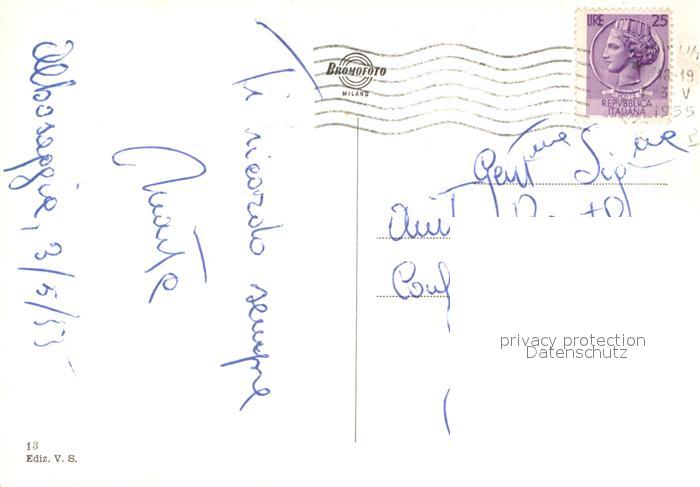 Albosaggia, 3/5/55
Ti ricordo sempre
BROMOFOTO
MILANO
LIRE 25
POSTE
REPVBBLICA
ITALIANA
18-19
3 V
1955
Gent.me Sig.ne
privacy protection
Datenschutz
13
Ediz. V. S.